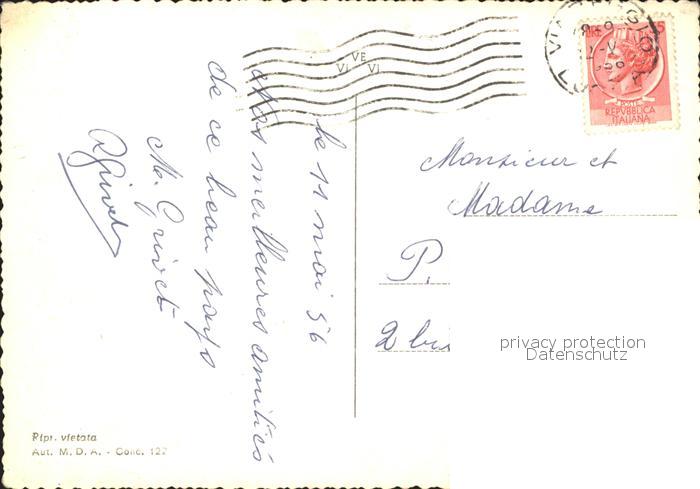 le 11 mai 56
meilleures amitiés
de ce beau pays
M. Grivet
Monsieur et
Madame
P.
2 bis
privacy protection
Datenschutz
Ripr. vietata
Aut. M. D. A. - Conc. 127
VE
VI VI
LIRE
POSTE
REPVBBLICA
ITALIANA